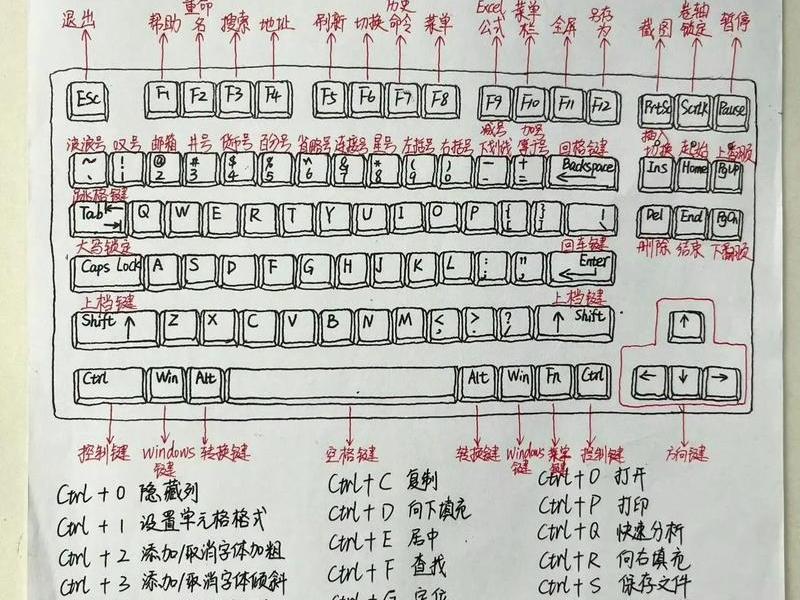 退出 帮助 重命名 搜索 地址 刷新 切换 历史命令 菜单 Excel公式 菜单栏 全屏 另存为 截图 卷轴锁定 暂停
Esc F1 F2 F3 F4 F5 F6 F7 F8 F9 F10 F11 F12 PrtSc ScrLK Pause
波浪号 叹号 邮箱 井号 货币号 百分号 省略号 连接号 星号 左括号 右括号 减号下划线 加号等于号 回格键 插入切换 起始 上翻页
~ ` ! 1 @ 2 # 3 $ 4 % 5 ^ 6 & 7 * 8 ( 9 ) 0 - - + = Backspace Ins Home PgUp
跳格键
Tab Q W E R T Y U I O P { [ } ] | \ Del End PgDn
大写锁定 回车键 删除 结束 下翻页
Caps Lock A S D F G H J K L : ; " , Enter
上档键 上档键
Shift ↑ Z X C V B N M < , > . ? / ↑ Shift ↑
Ctrl Win Alt Alt Win Fn Ctrl ← ↓ →
控制键 windows键 转换键 空格键 转换键 windows键 菜单键 控制键 方向键
Ctrl + 0 隐藏列 Ctrl + C 复制 Ctrl + O 打开
Ctrl + 1 设置单元格格式 Ctrl + D 向下填充 Ctrl + P 打印
Ctrl + 2 添加/取消字体加粗 Ctrl + E 居中 Ctrl + Q 快速分析
Ctrl + 3 添加/取消字体倾斜 Ctrl + F 查找 Ctrl + R 向右填充
Ctrl + G 定位 Ctrl + S 保存文件